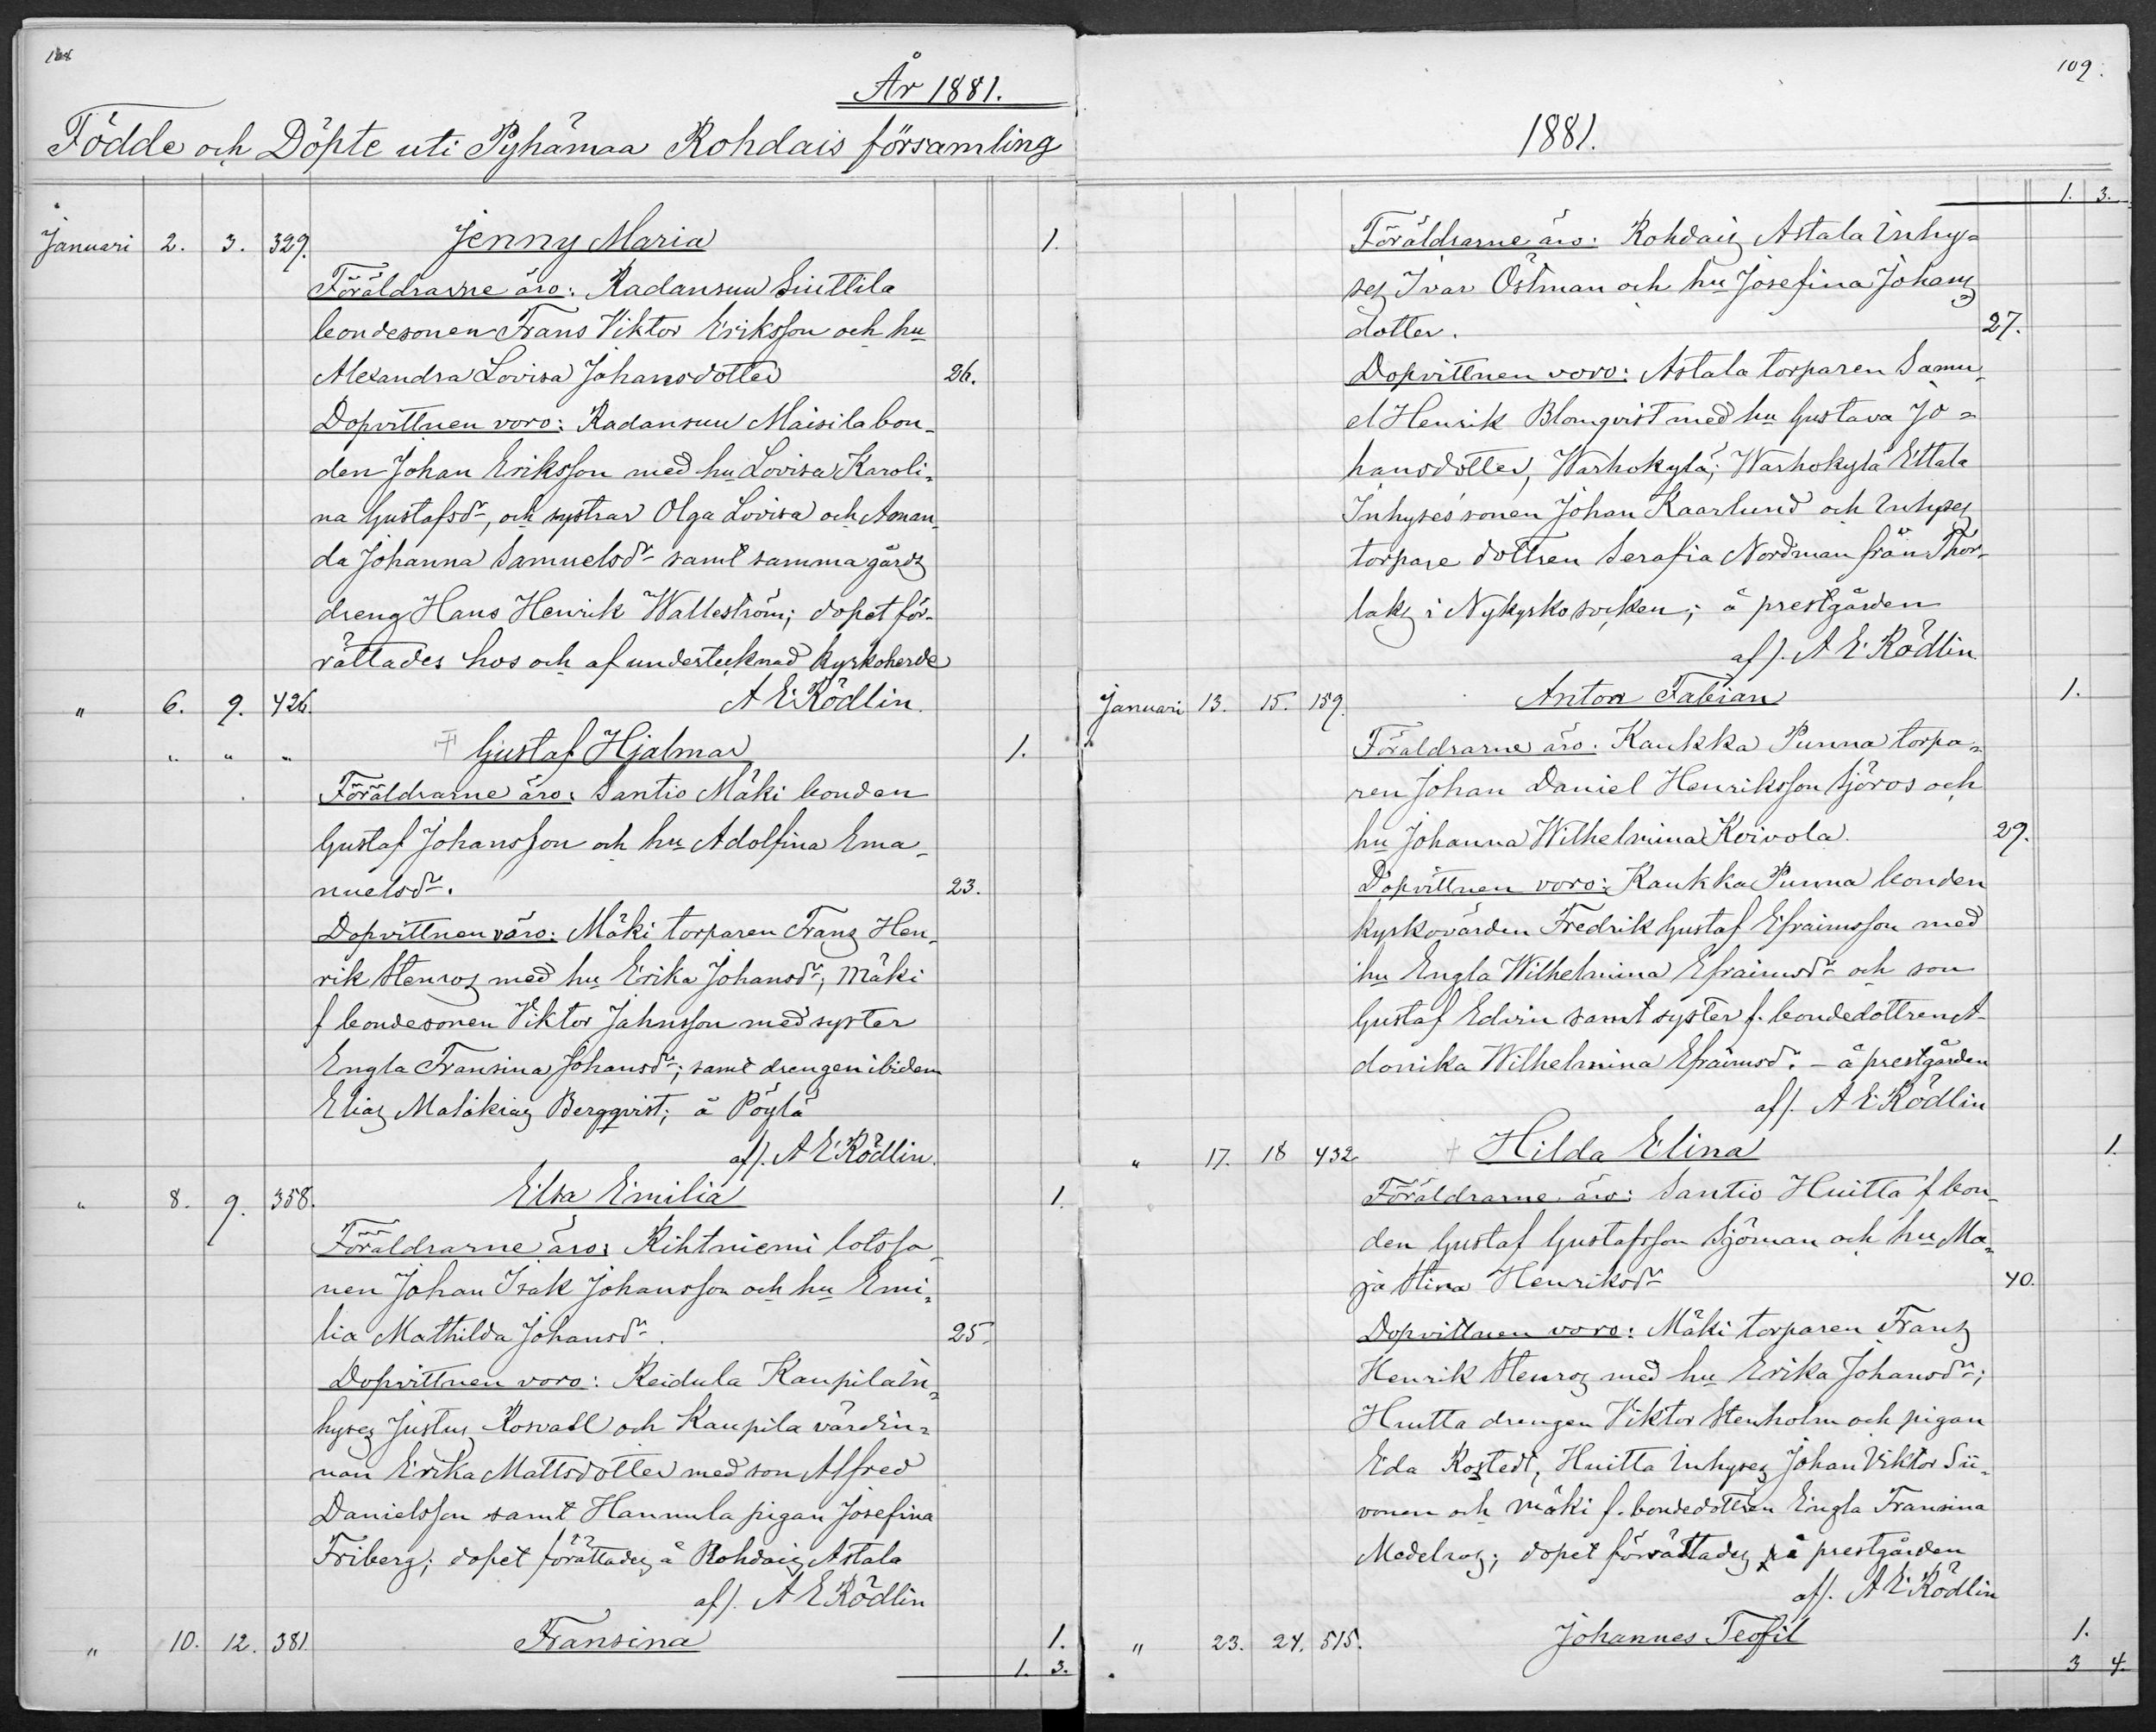 108
År 1881.
Födde och Döpte uti Pyhämaa Rohdais församling
Januari 2. 3. 329. Jenny Maria 1.
Föräldrarne äro: Radansuu Siuttila
bondesonen Frans Viktor Eriksson och hu
Alexandra Lovisa Johansdotter 26.
Dopvittnen voro: Radansuu Maisila bon-
den Johan Eriksson med hu Lovisa Karoli-
na Gustafsdr, och systrar Olga Lovisa och Aman-
da Johanna Samuelsdr samt samma gårds
dreng Hans Henrik Walleström; dopet för-
rättades hos och af undertecknad kyrkoherde
" 6. 9. 426. A E Rödlin.
" " " Gustaf Hjalmar 1.
Föräldrarne äro: Santio Mäki bonden
Gustaf Johansson och hu Adolfina Ema-
nuelsdr. 23.
Dopvittnen voro: Mäki torparen Frans Hen-
rik Stenros med hu Erika Johansdr; Mäki
f bondesonen Viktor Jahnsson med syster
Engla Fransina Johansdr; samt drengen ibidem
Elias Malakias Bergqvist; å Pöylä
af). A E Rödlin.
" 8. 9. 358. Elsa Emilia 1.
Föräldrarne äro: Rihtniemi lotsso-
nen Johan Isak Johansson och hu Emi-
lia Mathilda Johansdr. 25.
Dopvittnen voro: Reidula Kaupila in-
hyses Justus Rosvall och Kaupila värdin-
nan Erika Mattsdotter med son Alfred
Danielsson samt Hannula pigan Josefina
Friberg; dopet förättades å Rohdais Astala
af). A E Rödlin
" 10. 12. 381. Fransina 1.
1. 3.
109.
1881.
1. 3.
Föräldrarne äro: Rohdais Astala Inhy-
ses Ivar Östman och hu Josefina Johans
dotter. 27.
Dopvittnen voro: Astala torparen Samu-
el Henrik Blomqvist med hu Gustava Jo-
hansdotter, Warhokylä; Warhokylä Ettala
Inhyses sonen Johan Kaarlund och Inhyses
torpare dottren Serafia Nordman från Thor-
laks i Nykyrko socken; å prestgården
af). A E Rödlin
Januari 13. 15. 159. Anton Fabian 1.
Föräldrarne äro: Kaukka Punna torpa-
ren Johan Daniel Henriksson Sjöros och
hu Johanna Wilhelmina Koivola. 29.
Dopvittnen voro: Kaukka Punna bonden
kyrkovärden Fredrik Gustaf Efraimsson med
hu Engla Wilhelmina Efraimsdr och son
Gustaf Edvin samt syster f. bondedottren A-
donika Wilhelmina Efraimsdr. - å prestgården
af). A E Rödlin
" 17. 18 432 Hilda Elina 1.
Föräldrarne äro: Santio Huitta f bon-
den Gustaf Gustafsson Sjöman och hu Ma-
ja Stina Henriksdr 40.
Dopvittnen voro: Mäki torparen Frans
Henrik Stenros med hu Erika Johansdr;
Huitta drengen Viktor Stenholm och pigan
Eda Rostedt, Huitta Inhyses Johan Viktor Sii-
vonen och Mäki f. bondedottren Engla Fransina
Medelros; dopet förrättades på prestgården
af). A E Rödlin
" 23. 24. 515. Johannes Teofil 1.
3 4.